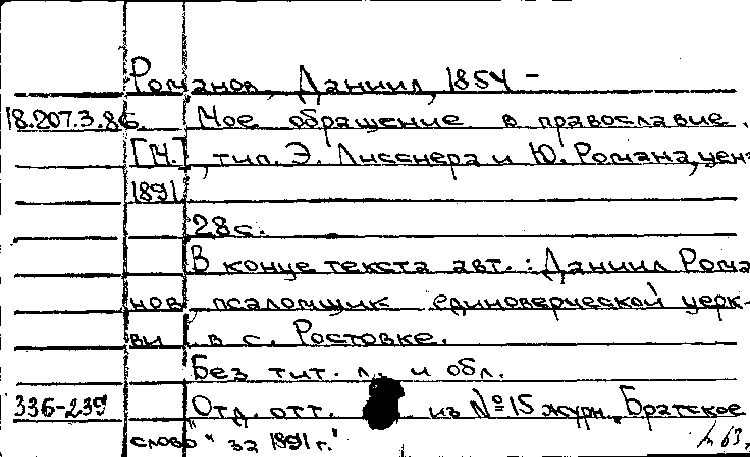 Романов, Даниил, 1854 -
18.207.3.86 Мое обращение в православие.
[М.], тип. Э. Лисснера и Ю. Романа, ценз.
1891
28с.
В конце текста авт.: Даниил Рома-
нов, псаломщик единоверческой церк-
ви в с. Ростовке.
Без тит. л. и обл.
336-239 Отд. отт. из №15 журн. „Братское
слово" за 1891 г.
63г.